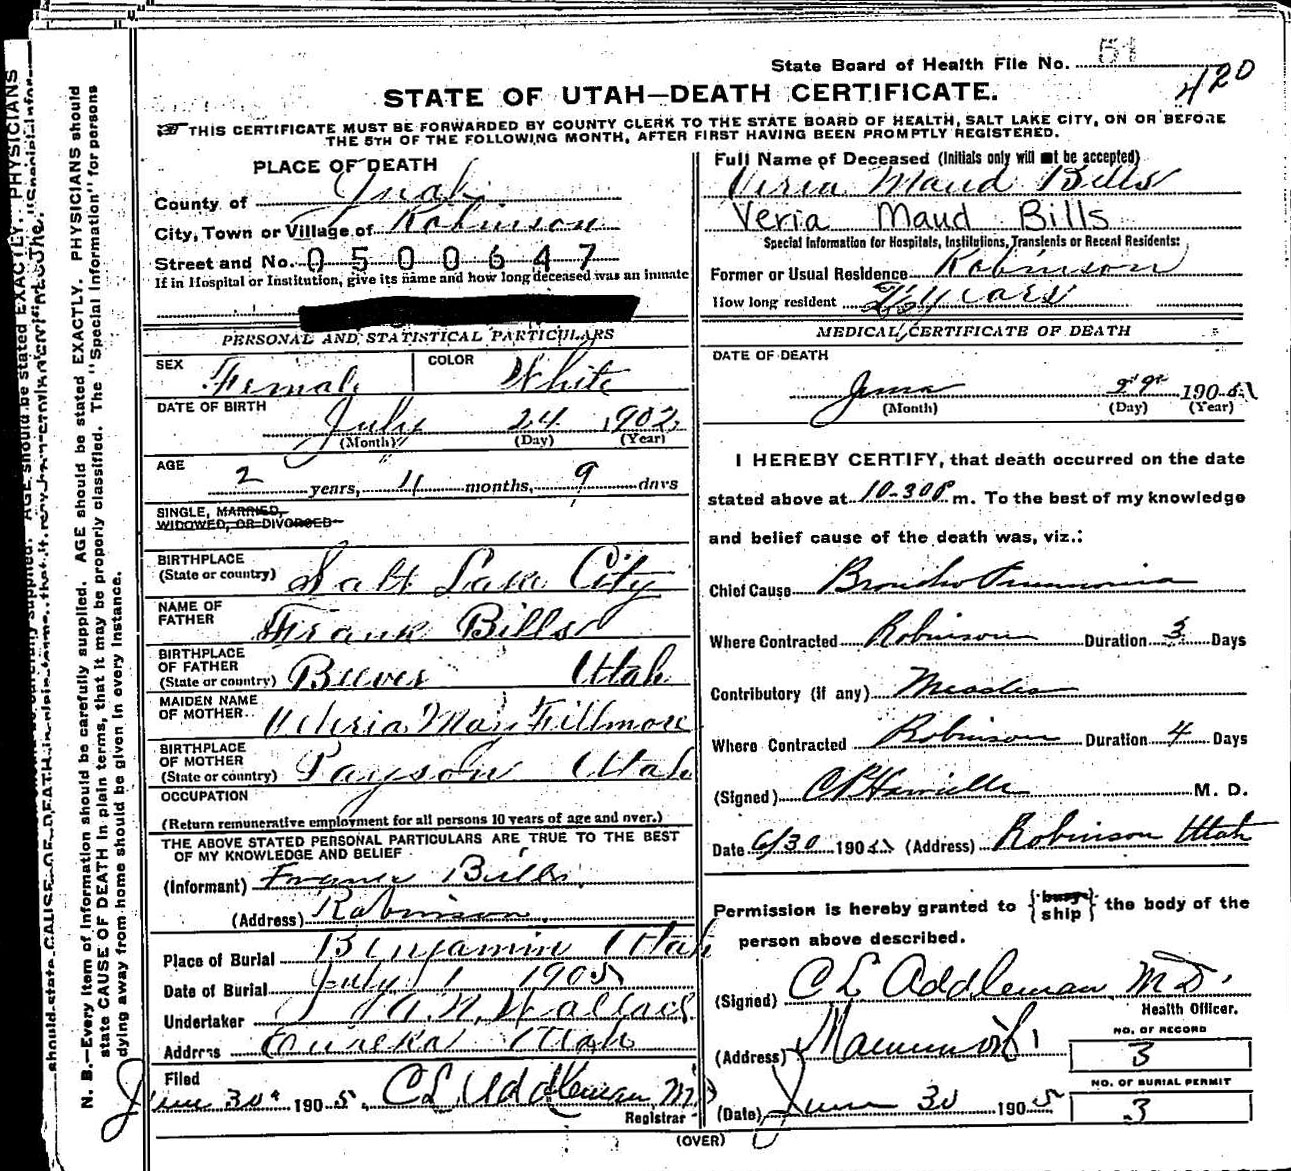 State Board of Health File No. 51
420
STATE OF UTAH—DEATH CERTIFICATE.
THIS CERTIFICATE MUST BE FORWARDED BY COUNTY CLERK TO THE STATE BOARD OF HEALTH, SALT LAKE CITY, ON OR BEFORE
THE 5TH OF THE FOLLOWING MONTH, AFTER FIRST HAVING BEEN PROMPTLY REGISTERED.
PLACE OF DEATH
County of Juab
City, Town or Village of Robinson
Street and No. 0500647
If in Hospital or Institution, give its name and how long deceased was an inmate
PERSONAL AND STATISTICAL PARTICULARS
SEX Female COLOR White
DATE OF BIRTH July 24 1902
(Month) (Day) (Year)
AGE 2 years, 11 months, 9 days
SINGLE, MARRIED,
WIDOWED, OR DIVORCED
BIRTHPLACE
(State or country) Salt Lake City
NAME OF
FATHER Frank Bills
BIRTHPLACE
OF FATHER
(State or country) Utah
MAIDEN NAME
OF MOTHER May Fillmore
BIRTHPLACE
OF MOTHER
(State or country) Payson Utah
OCCUPATION
(Return remunerative employment for all persons 10 years of age and over.)
THE ABOVE STATED PERSONAL PARTICULARS ARE TRUE TO THE BEST
OF MY KNOWLEDGE AND BELIEF
(Informant) Bills
(Address) Robinson
Place of Burial Benjamin Utah
Date of Burial July 1 1905
Undertaker A. N. Wallace
Address Eureka Utah
Filed
June 30 1905. C L Addleman M D
Registrar
Full Name of Deceased (Initials only will not be accepted)
Viria Maud Bills
Veria Maud Bills
Special Information for Hospitals, Institutions, Transients or Recent Residents:
Former or Usual Residence Robinson
How long resident years
MEDICAL CERTIFICATE OF DEATH
DATE OF DEATH
June 29 1905
(Month) (Day) (Year)
I HEREBY CERTIFY, that death occurred on the date
stated above at 10-30 P m. To the best of my knowledge
and belief cause of the death was, viz.:
Chief Cause Broncho Pneumonia
Where Contracted Robinson Duration 3 Days
Contributory (if any) Measles
Where Contracted Robinson Duration 4 Days
(Signed) M. D.
Date 6/30 1905 (Address) Robinson Utah
Permission is hereby granted to {bury ship} the body of the
person above described.
(Signed) C L Addleman M D.
Health Officer.
(Address) Mammoth
NO. OF RECORD
3
NO. OF BURIAL PERMIT
3
(Date) June 30 1905
(OVER)
N. B.—Every item of information should be carefully supplied. AGE should be stated EXACTLY. PHYSICIANS should
state CAUSE OF DEATH in plain terms, that it may be properly classified. The "Special Information" for persons
dying away from home should be given in every instance.